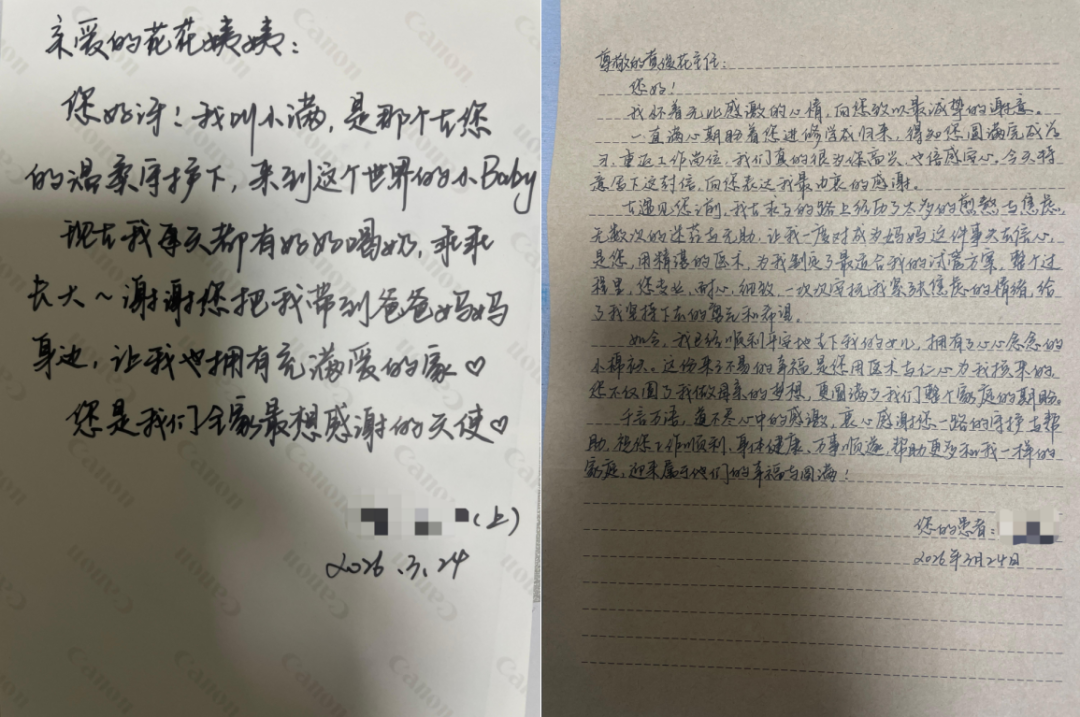 亲爱的花花姨姨：
您好呀！我叫小满，是那个在您
的温柔守护下，来到这个世界的小Baby
现在我每天都有好好喝奶，乖乖
长大～谢谢您把我带到爸爸妈妈
身边，让我也拥有充满爱的家♡
您是我们全家最想感谢的天使♡
(上)
2026.3.24
尊敬的黄俊花主任：
您好！
我怀着无比感激的心情，向您致以最诚挚的谢意。
一直满心期盼着您进修学成归来，得知您圆满完成学
习，重返工作岗位，我们真的很为您高兴，也倍感安心，今天特
意写下这封信，向您表达我最由衷的感谢。
在遇见您之前，我在求子的路上经历了太多的煎熬与焦虑，
无数次的迷茫与无助，让我一度对成为妈妈这件事失去信心，
是您，用精湛的医术，为我制定了最适合我的试管方案，整个过
程里，您专业、耐心、细致，一次次安抚我紧张焦虑的情绪，给
了我坚持下去的勇气和希望。
如今，我已经顺利平安地生下我的女儿，拥有了心心念念的
小棉袄。这份来之不易的幸福是您用医术与仁心为我换来的
您不仅圆了我做母亲的梦想，更圆满了我们整个家庭的期盼。
千言万语，道不尽心中的感激，衷心感谢您一路的守护与帮
助，祝您工作顺利、身体健康、万事顺遂，帮助更多和我一样的
家庭，迎来属于他们的幸福与圆满！
您的患者：
2026年3月24日
Canon